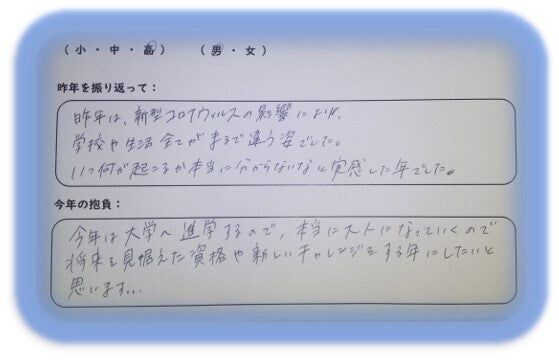 （ 小 ・ 中 ・ 高 ）　（ 男 ・ 女 ）
昨年を振り返って：
昨年は、新型コロナウィルスの影響により、
学校や生活全てがまるで違う姿でした。
いつ何が起こるか本当に分からないなと実感した年でした。
今年の抱負：
今年は大学へ進学するので、本当に大人になっていくので
将来を見据えた資格や新しいチャレンジをする年にしたいと
思います...